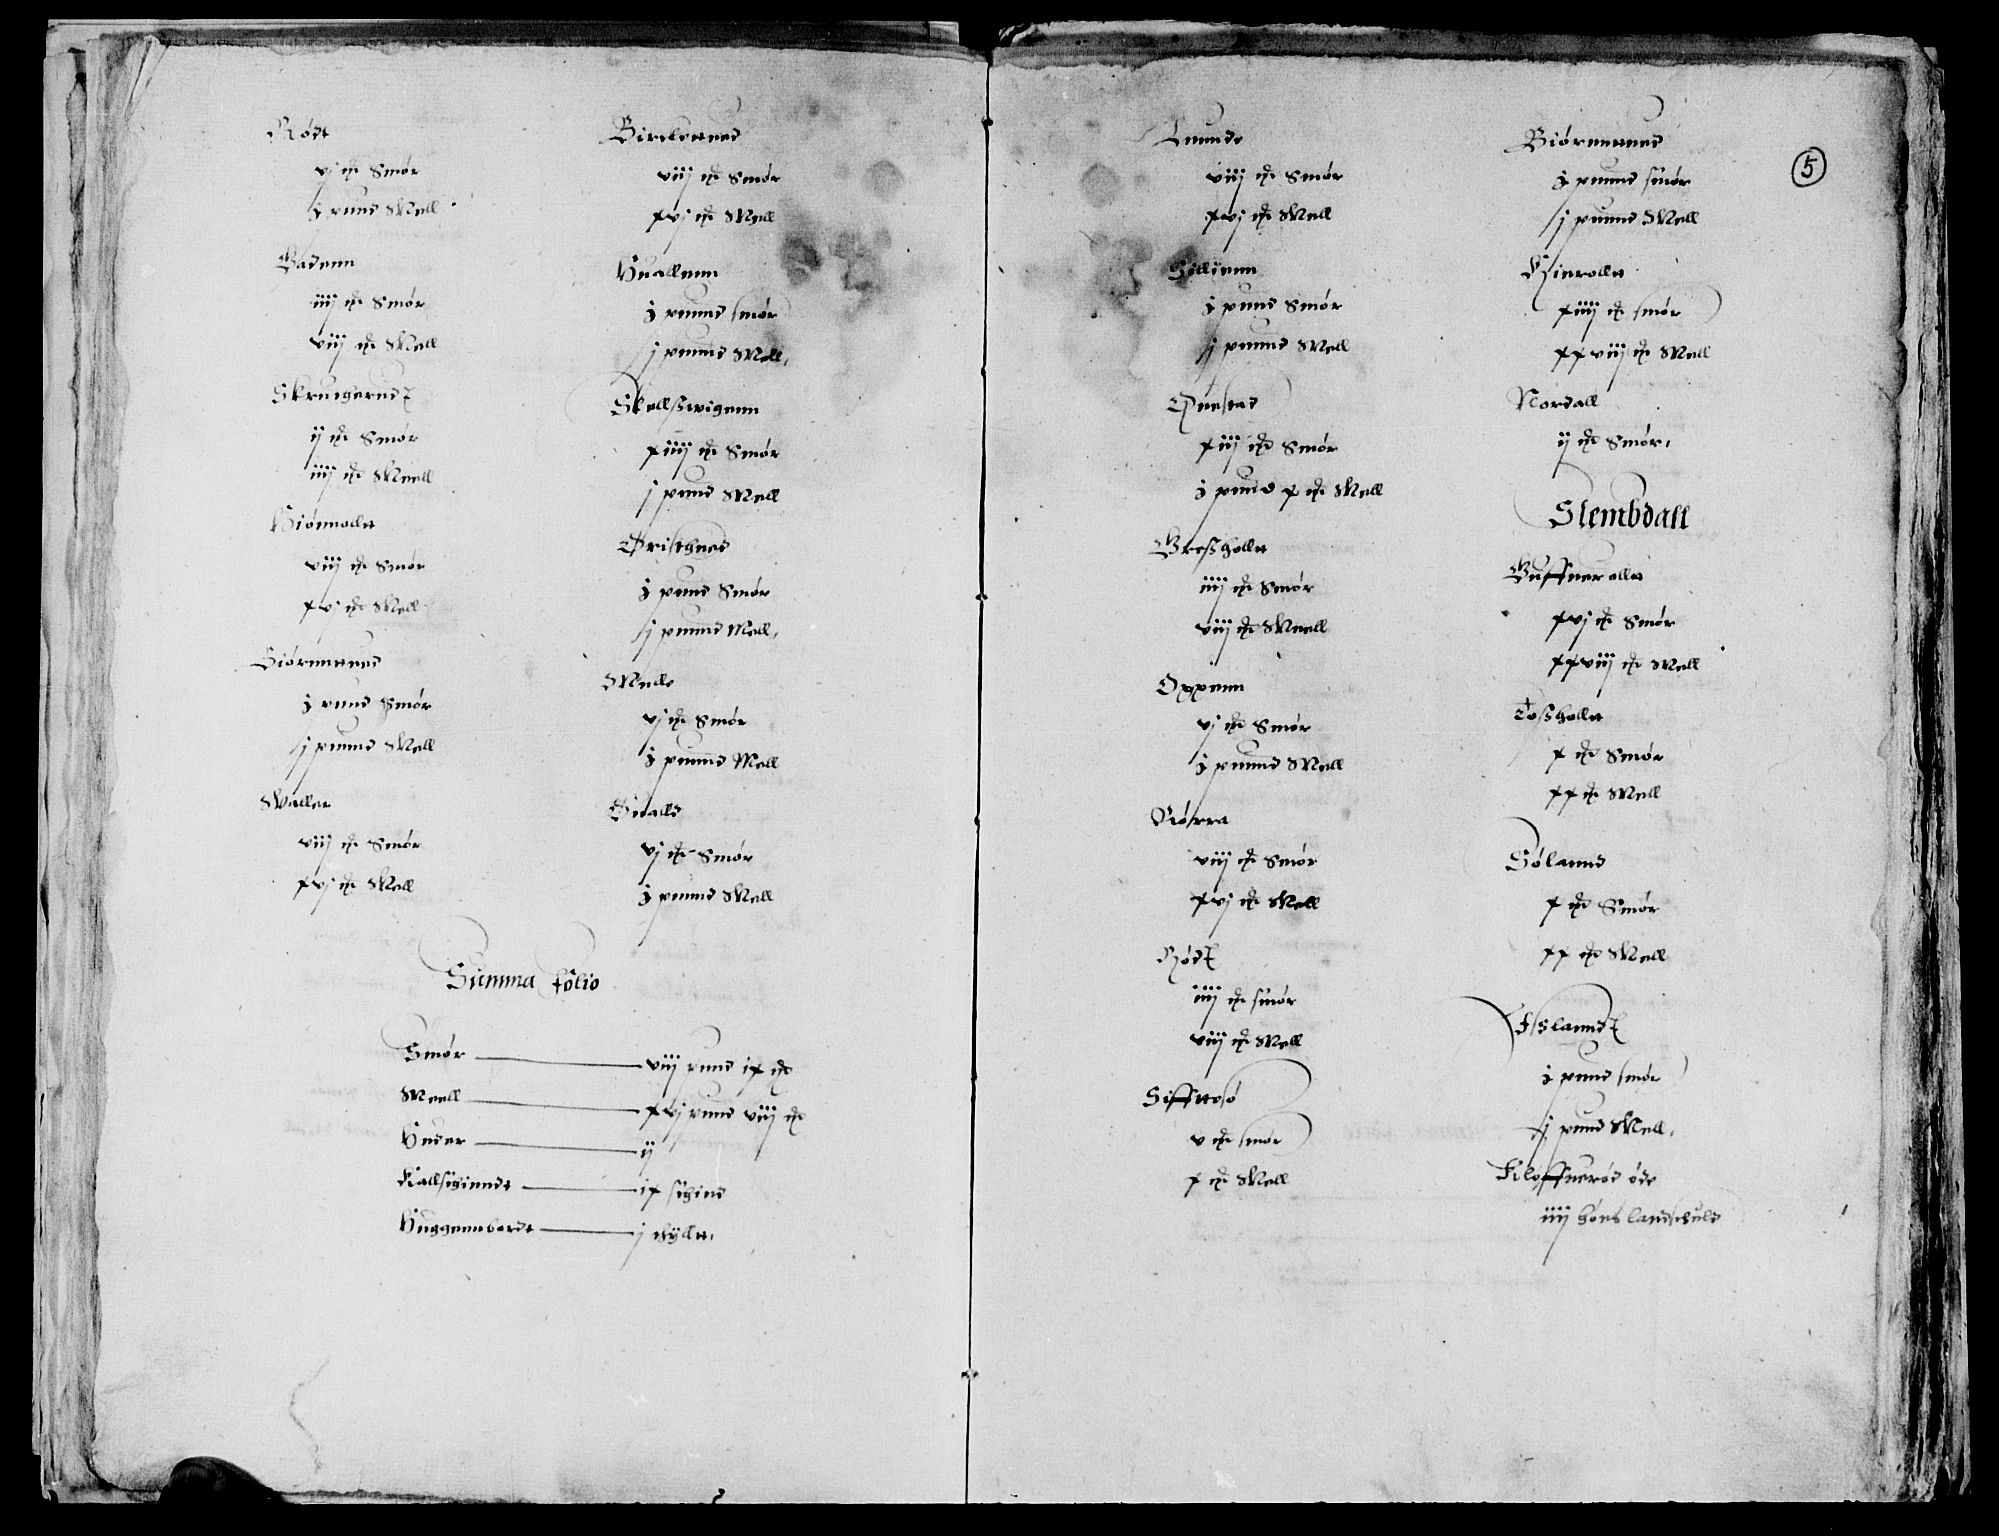 Rødt
vj ℔ Smør
j pund Mell
Badenn
iiij ℔ Smør
viij ℔ Mell
Skrugerudt
ij ℔ Smør
iiij ℔ Meell
viij ℔ Smør
xvj ℔ Mell
Biørnnenes
j pund Smør
j punnd Mell
Waller
viij ℔ Smør
xvj ℔ Mell
Birckennes
viij ℔ Smør
xvj ℔ Mell
Huallenn
j punnd smør
j punnd Mell,
Skellßwigenn
xiiij ℔ Smør
j pund Mell
Øristhnes
j pund Smør
j punnd Mell,
Melle
vj ℔ Smør
j punnd Mell
Hualle
vj ℔ Smør
j punnd Mell
Summa folio
Smør viij pund ix ℔
Meell xvj pund viij ℔
Huder ij
Kallskinndt ix skind
Huggennbordt j thyllt,
5
Lunnde
viij ℔ Smør
xvj ℔ Mell
Sillienn
j pund Smør
j punnd Mell
Questad
xiij ℔ Smør
j pund x ℔ Mell
Greßhollt
iiij ℔ Smør
viij ℔ Meell
Oppenn
vj ℔ Smør
j punnd Mell
Rørra
viij ℔ Smør
xvj ℔ Mell
Rødt
iiij ℔ smør
viij ℔ Mell
Sifftesø
v ℔ smør
x ℔ Mell
Biørnnenes
j punnd smør
j punnd Mell
xiiij ℔ smør
xxviij ℔ Mell
Nordall
ij ℔ Smør,
Slembdall
Guffuerollt
xvj ℔ Smør
xxviij ℔ Mell
Toßhollt
x ℔ Smør
xx ℔ Mell
Sølannd
x ℔ Smør
xx ℔ Mell
Islanndt
j pund smør
j pund Mell,
Kløffuerød øde
iiij høns landschuld